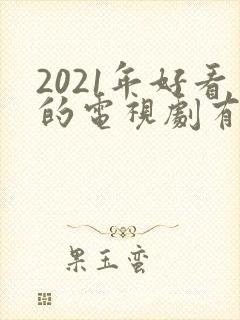 2021年好看
的電視劇有
果玉蛮